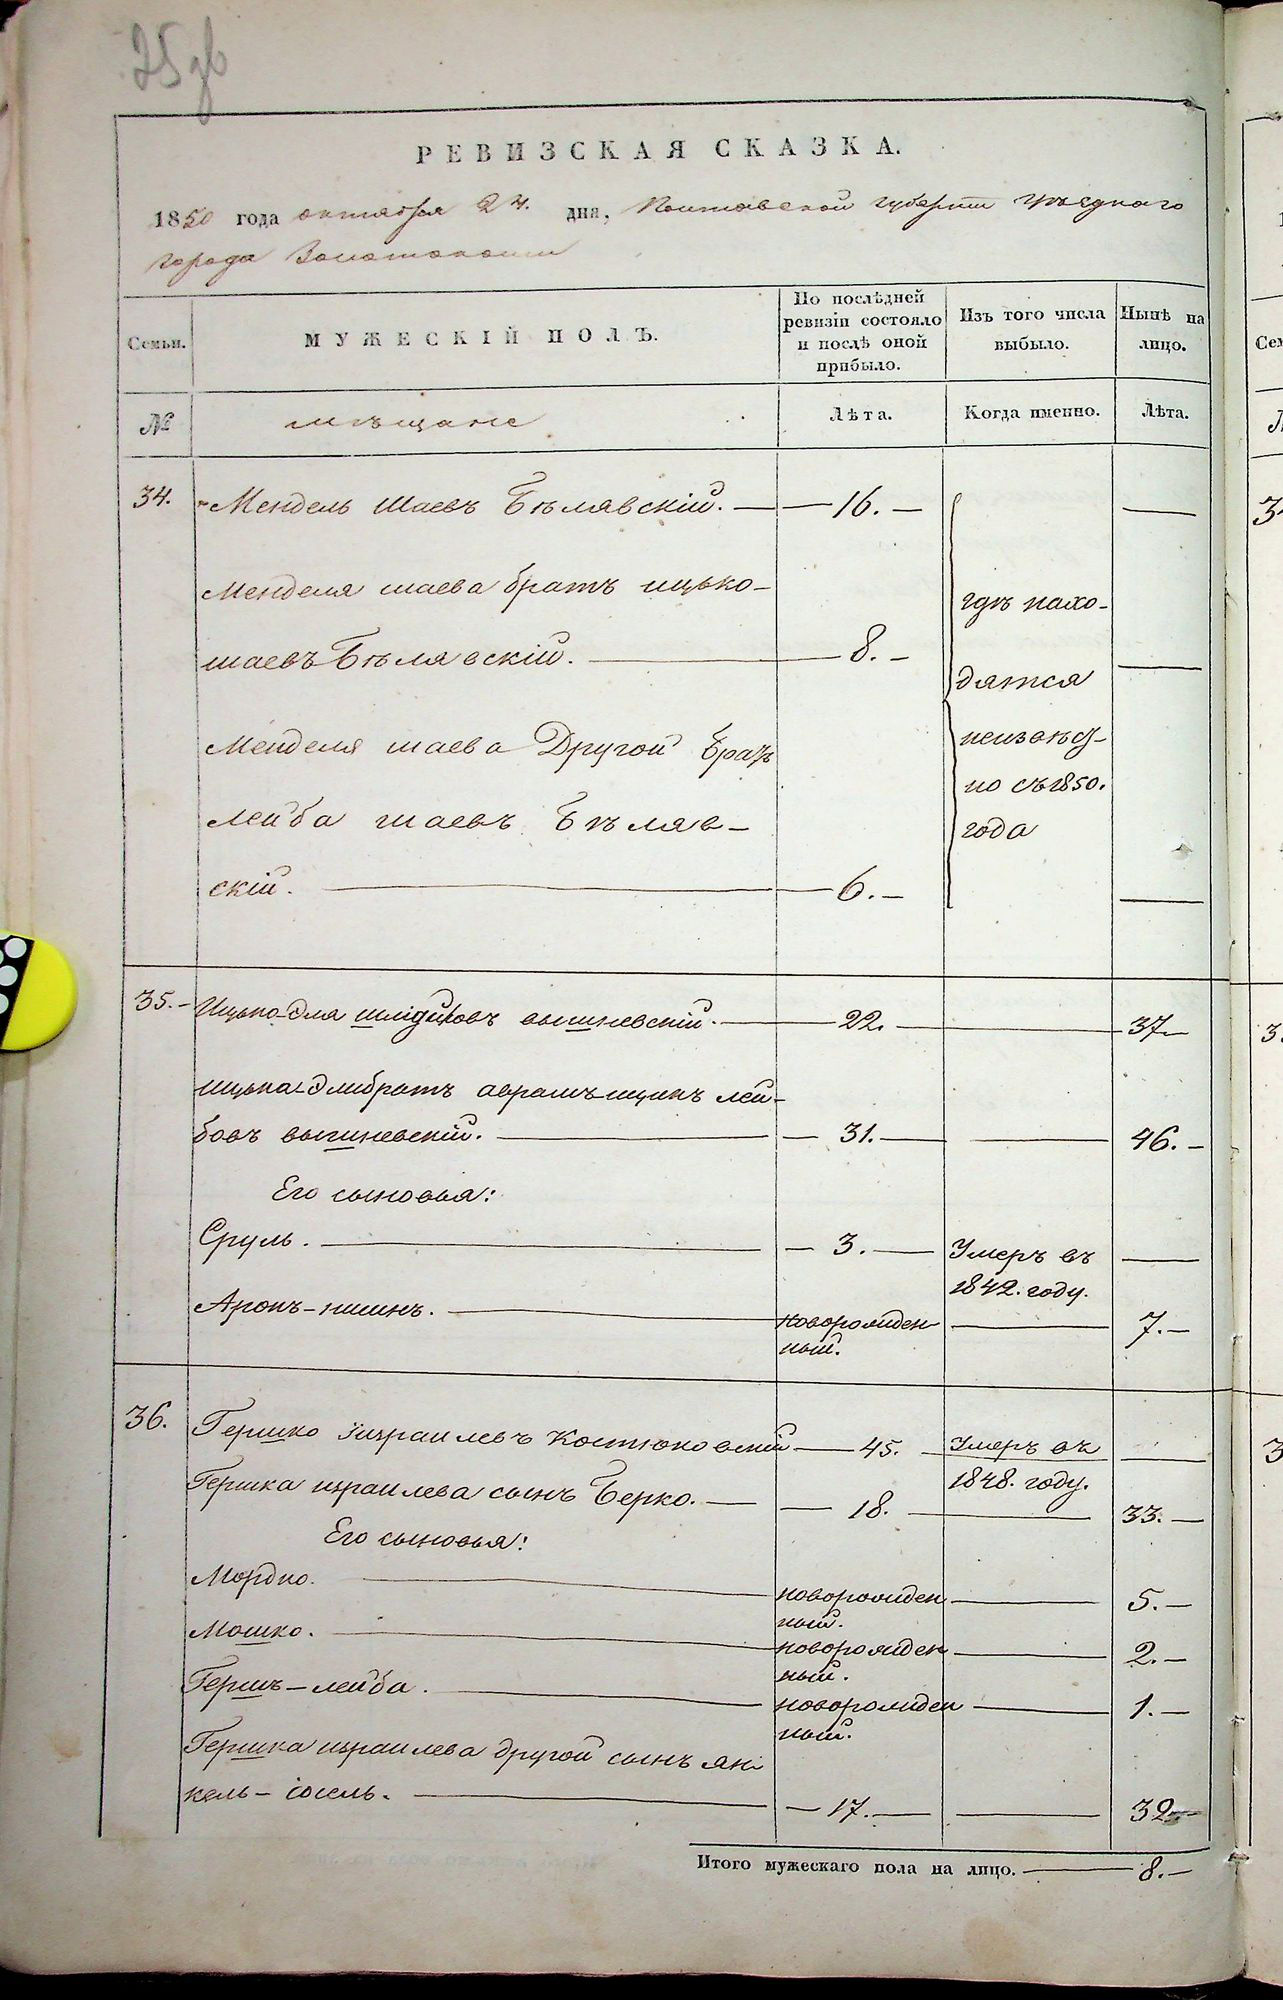 РЕВИЗСКАЯ СКАЗКА.
1850 года октября 24. дня, Полтавской губернии уѣзднаго
города Золотоноши
Семьи. МУЖЕСКІЙ ПОЛЪ. По послѣдней ревизіи состояло и послѣ оной прибыло. Изъ того числа выбыло. Нынѣ на лицо.
№ мѣщане Лѣта. Когда именно. Лѣта.
34. Мендель Шаевъ Бѣлявскій. — 16. — —
Менделя шаева братъ ицько- гдѣ нахо-
шаевъ Бѣлявскій. — 8. — дятся —
Менделя шаева Другой братъ неизвѣст-
но съ 1850.
лейба шаевъ Бѣляв- года
скій. — 6. — —
35. Ицько-Эля вышневскій. — 22. — 37
ицька-Эли братъ аврамъ-ицикъ лей-
бовъ вышневскій. — 31. — 46. —
Его сыновья:
Сруль. — 3. — Умеръ въ —
1842. году.
Аронъ-нисинъ. — новорожден- — 7. —
ный.
36. Гершко израилевъ Костюковскій — 45. — Умеръ въ —
1848. году.
Гершка израилева сынъ Берко. — 18. — 33. —
Его сыновья:
Мордко. — новорожден — 5. —
ный.
Мошко. — новорожден — 2. —
ный.
Гершъ-лейба. — новорожден — 1. —
ный.
Гершка израилева другой сынъ ян-
кель-іосель. — 17. — 32 —
Итого мужескаго пола на лицо. — 8. —